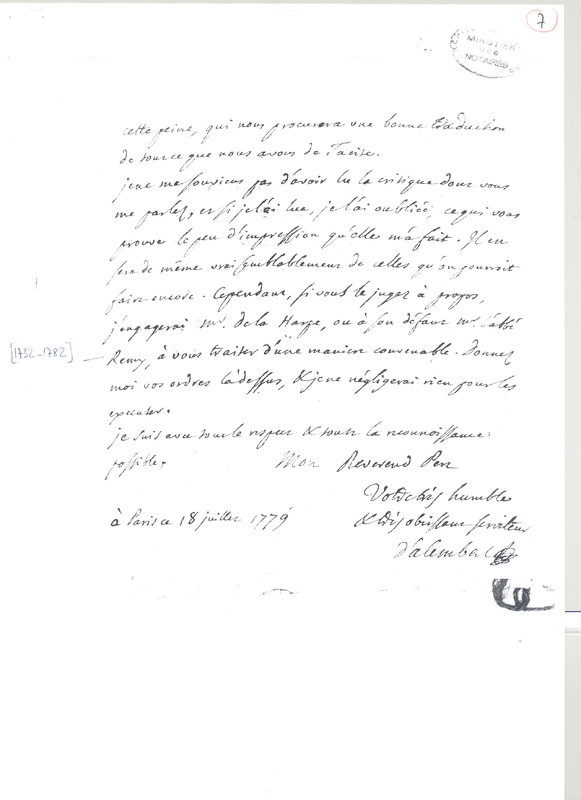 7
MINUTIER
DES
NOTAIRES
cette peine, qui nous procurera une bonne traduction
de tout ce que nous avons de Tacite.
je ne me souviens pas d'avoir lu la critique dont vous
me parlez, et si je l'ai lue, je l'ai oubliée, ce qui vous
prouve le peu d'impression qu'elle m'a fait. Il en
sera de même vraisemblablement de celles qu'on pourroit
faire encore. Cependant, si vous le jugez à propos,
j'engagerai mr. de la Harpe, ou à son défaut mr. l'abbé
[1732-1782]
Remy, à vous traiter d'une maniere convenable. Donnez
moi vos ordres là dessus, & je ne négligerai rien pour les
executer.
je suis avec tout le respect & toute la reconnoissance
possible.
Mon Reverend Pere
Votre très humble
& très obeissant serviteur
à Paris ce 18 juillet 1779
d'alembert